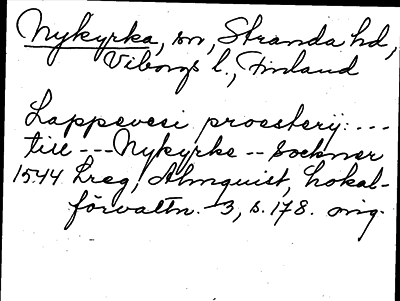 Nykyrka, sn, Stranda hd,
Viborgs l., Finland
Lappvesi prosteri: ...
till --- Nykyrke -- Socknar
1544 Lreg, Almquist, Lokal-
förvaltn. 3, s. 178. orig.